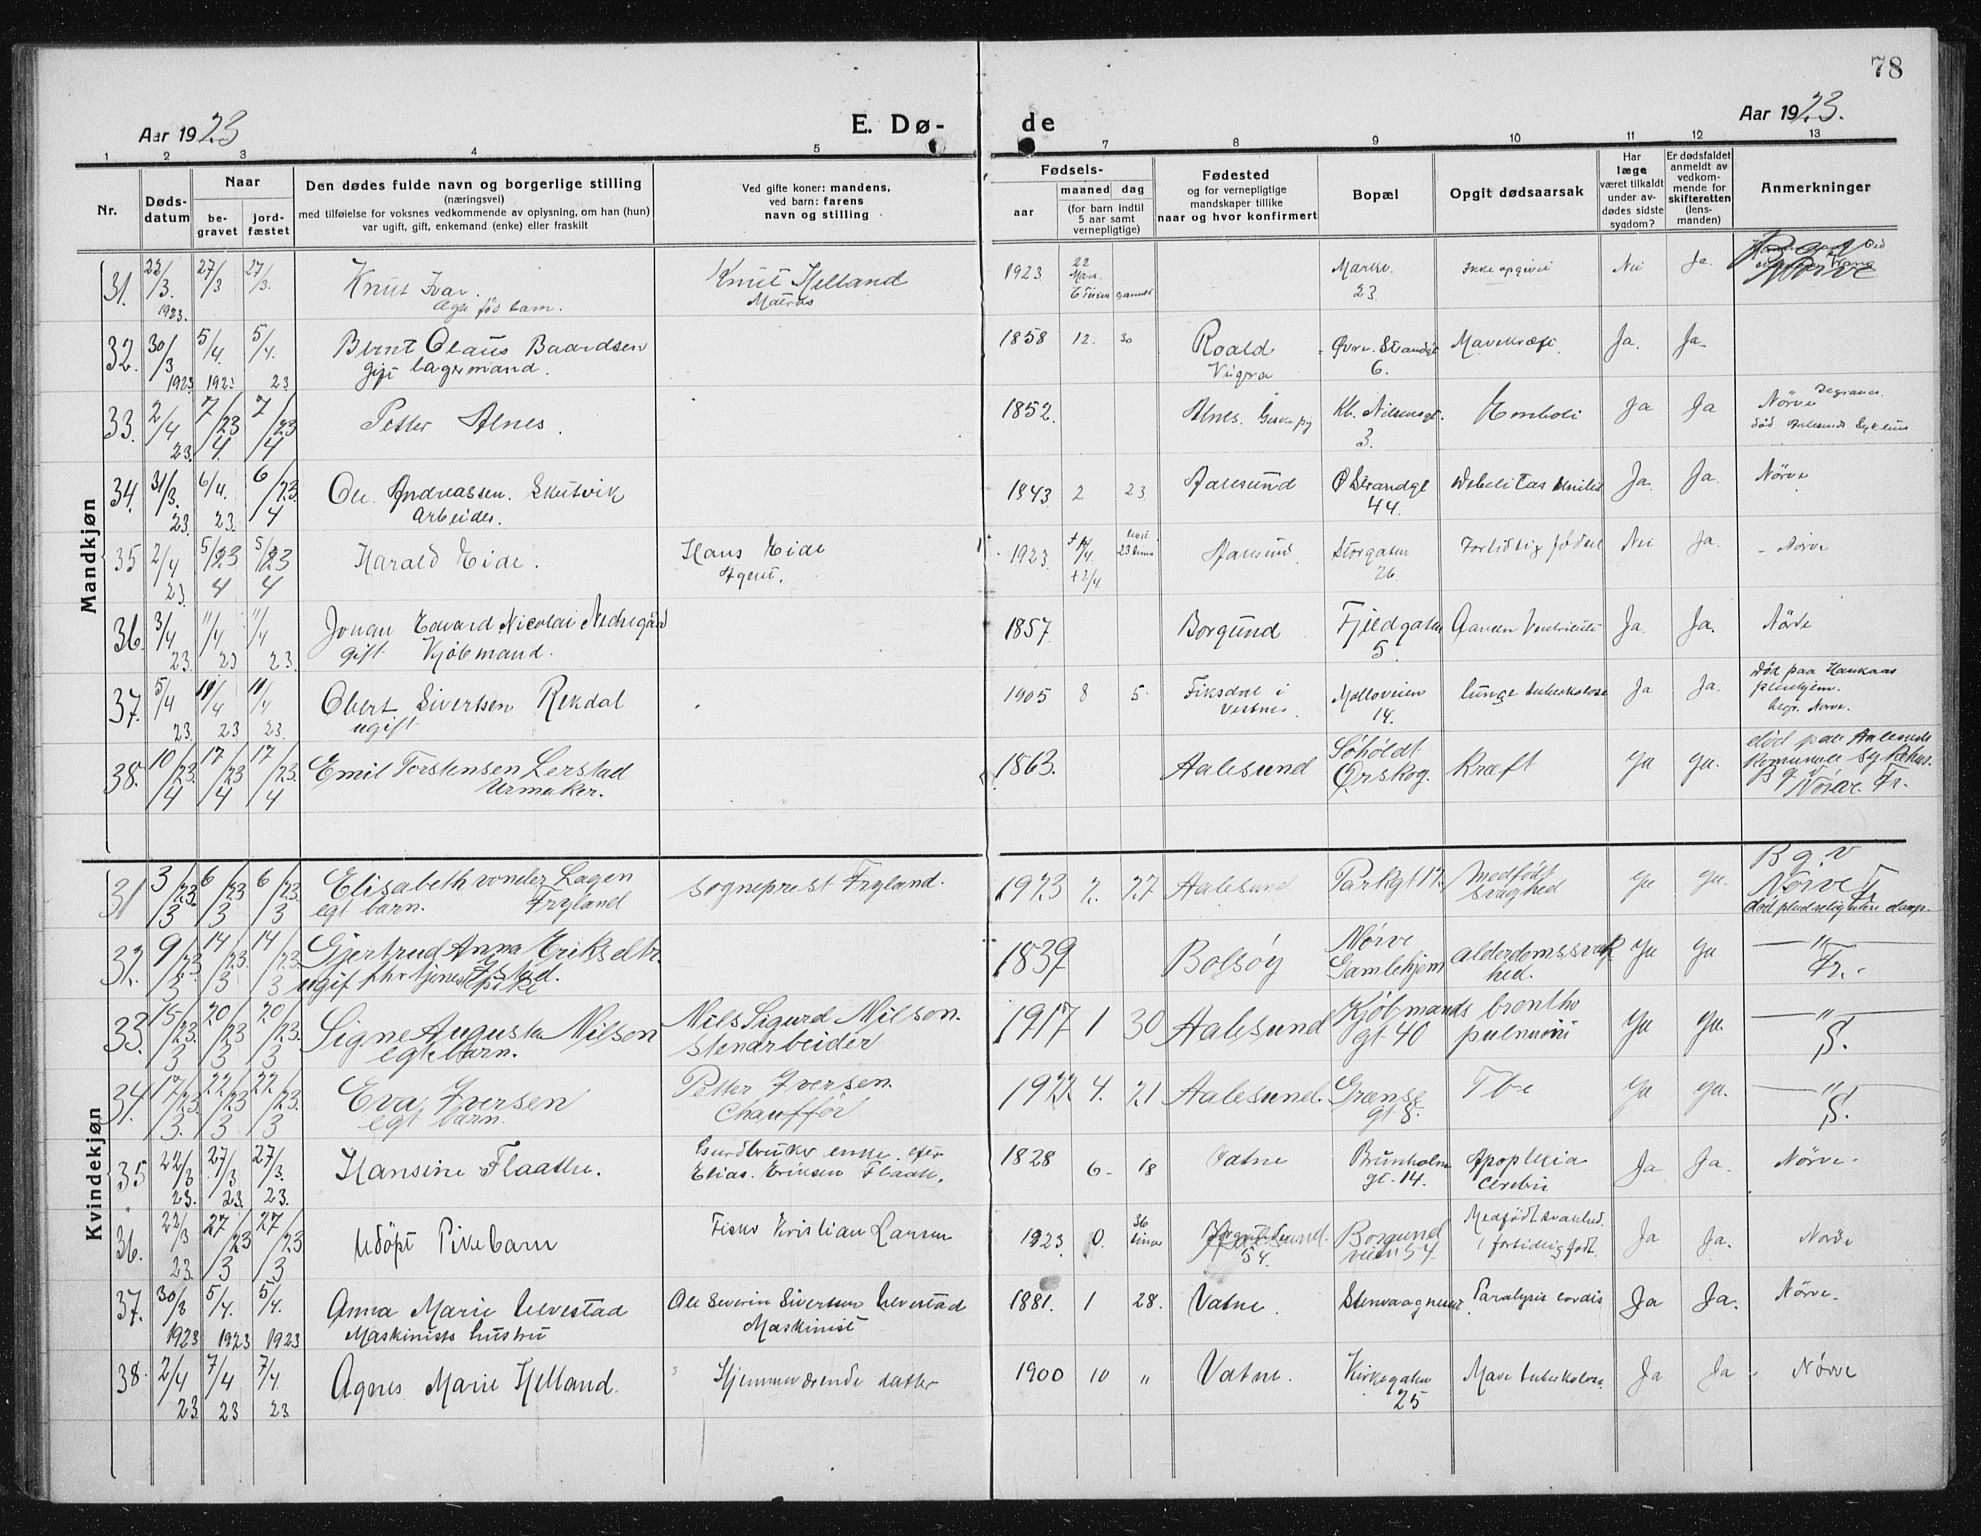 78
Aar 1923
E. Dø-
de
Aar 1923.
1 2 3 4 5 7 8 9 10 11 12 13
Nr.
Døds-
datum
Naar
be-
gravet
jord-
fæstet
Den dødes fulde navn og borgerlige stilling
(næringsvei)
med tilføielse for voksnes vedkommende av oplysning, om han (hun)
var ugift, gift, enkemand (enke) eller fraskilt
Ved gifte koner: mandens,
ved barn: farens
navn og stilling
Fødsels-
aar
maaned
dag
(for barn indtil
5 aar samt
vernepligtige)
Fødested
og for vernepligtige
mandskaper tillike
naar og hvor konfirmert
Bopæl
Opgit dødsaarsak
Har
læge
været tilkaldt
under av-
dødes sidste
sygdom?
Er dødsfaldet
anmeldt av
vedkom-
mende for
skifteretten
(lens-
manden)
Anmerkninger
Mandkjøn
31. 22/3. 1923. 27/3 27/3. Knut Ivar Knut Helland 1923 22 23 Ikke opgivet Nei Ja.
barn. Matros
32. 30/3 1923 5/4. 1923 5/4. 23 Bernt Olaus Baardsen 1858 12. 30 Roald Øvre. Strandgt Mavekræft. Ja. Ja.
gift lagermand. Vigra 6.
33. 2/4 23. 7/4 23 7/4 23 Petter Alnes. 1852. Alnes. Kb. Nilsensgt. Emboli Ja Ja Nørve Begraves.
3. død Aalesunds Sykehus
34. 31/3. 23. 6/4. 23. 6/4 23. Ole Andreassen. Skutvik 1843 2 23 Aalesund Ø Strandgt Debilitas senilis Ja. Ja. Nørve
Arbeider. 44.
35 2/4 23. 5/4 23 5/4 23 Harald Eide. Hans Eide 1923. Aalesund Storgaten For tidlig fødsel Nei Ja. Nørve
Agent. +2/4. 26.
36. 3/4 23. 11/4 23 11/4 23. Johan Edvard Nicolai Nedregård 1857. Borgund Fjeldgaten Cancer Ventriculi Ja. Ja. Nørve
gift Kjøbmand. 5.
37. 5/4 23. 11/4 23 11/4 23. Obert Sivertsen Rekdal 1905 8 5 Fiksdal i Molloveien Lunge tuberkolose Ja Ja. Død paa Haukaas
ugift Vestnes. 14. pleiehjem.
begr. Nørve.
38. 10/4 23. 17/4 23 17/4 23. Emil Torstensen Lerstad 1863. Aalesund Søholdt Kræft Ja Ja. død paa Aalesunds
Urmaker. Ørskog. Komunale Sykehus.
Bgv Nörve. Fr.
Kvindekjøn
31 3/3 23. 6/3 23 6/3 23. Elisabeth vonder Lagen Sogneprest Fryland. 1923 2. 27 Aalesund Parkgt 17. Medfödt Ja Ja. Bg.v
egt barn. Fryland svaghed Nörve Fr
32. 9/3 23 14/3 23. 14/3 23. Gjertrud Anna Eriksdtr. 1839 Bolsöy Nörve Alderdomssvak Ja Ja — " —
Gamlehjem hed. Fr.
33. 15/3 23. 20/3 23 20/3 23. Signe Augusta Nilson Nils Sigurd Nilson. 1917 1 30 Aalesund Kjöbmands brontho Ja Ja. — " —
egte barn. Stenarbeider gt 40 pulmoni S.
34. 17/3. 23. 22/3 23 22/3 23. Eva Iversen Petter Iversen. 1922 4. 21 Aalesund. Grænse Tbc Ja Ja — " —
egt barn. Chauffør gt 8. S.
35 22/3 23. 27/3 23. 27/3. 23. Hansine Flaathe. Gardbruker enke. efter 1828 6 18 Vatne Brunholm Apoplexia Ja Ja. Nørve.
Elias. Eriksen Flaathe. gt. 14. Cerebri
36. 22/3 23. 27/3 23 27/3 23 Udöpt Pikebarn Fisker Kristian Larsen 1923 0. 36 timer Borgund Medfødt svakhed. Ja Ja. Nørve
54. veien 54. fortidlig født.
37. 30/3 1923 5/4. 1923 5/4. 1923 Anna Marie Ulvestad Ole Severin Sivertsen Ulvestad 1881. 1 28. Vatne. Stenvaagneset Paralysis cordis Ja Ja. Nørve.
Maskinists hustru Maskinist
38. 2/4 23. 7/4 23 7/4. 23 Agnes Marie Helland. Hjemmeværende datter 1900 10 " Vatne. Kirkegaten Mave tuberkolose. Ja Ja Nørve
25